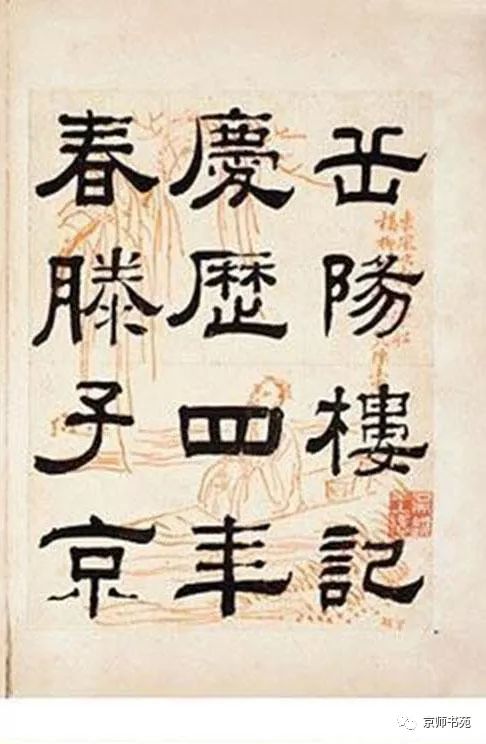 岳陽樓記
慶歷四年
春滕子京
京师书苑